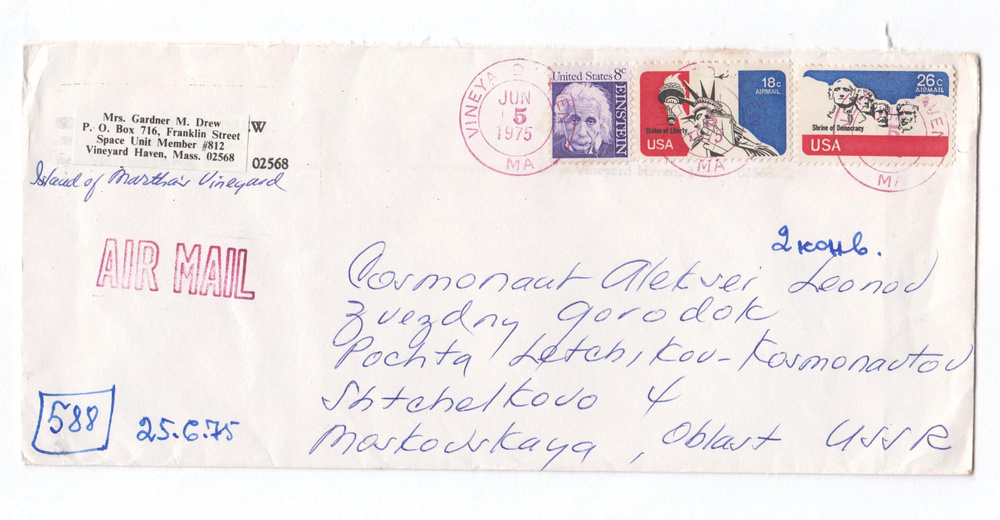 Mrs. Gardner M. Drew
P. O. Box 716, Franklin Street
Space Unit Member #812
Vineyard Haven, Mass. 02568
EW
02568
Island of Martha's Vineyard
AIR MAIL
VINEYARD HAVEN
JUN
5
1975
MA
United States 8c
EINSTEIN
18c
AIRMAIL
Statue of Liberty
USA
MA
26c
AIRMAIL
Shrine of Democracy
USA
MA
Vineyard Haven, 02568
2 конв.
Cosmonaut Aleksei Leonov
Zvezdny gorodok
Pochta Letchikov-Kosmonavtov
Shtchelkovo 4
Moskovskaya, Oblast USSR
588
25.6.75